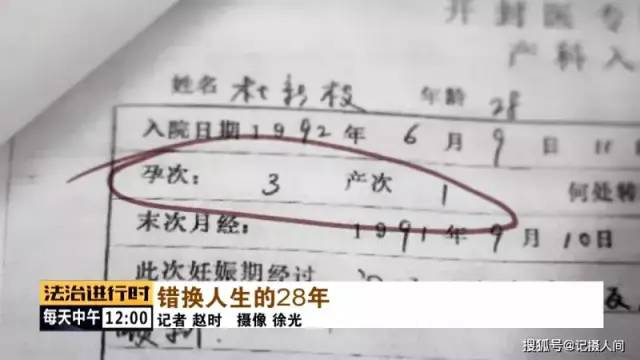 开封医专
产科入
姓名 杜新枝 年龄 28
入院日期 1992 年 6 月 9 日 11
孕次: 3 产次 1 何处转
末次月经: 1991 年 9 月 10 日
此次妊娠期经过
顺利
法治进行时
每天中午 12:00
错换人生的28年
记者 赵时 摄像 徐光
搜狐号@记摄人间